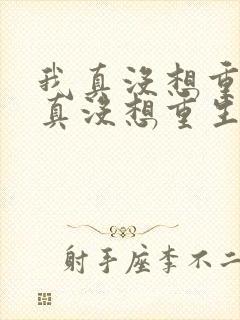 我真没想重
真没想重生
射手座李不二